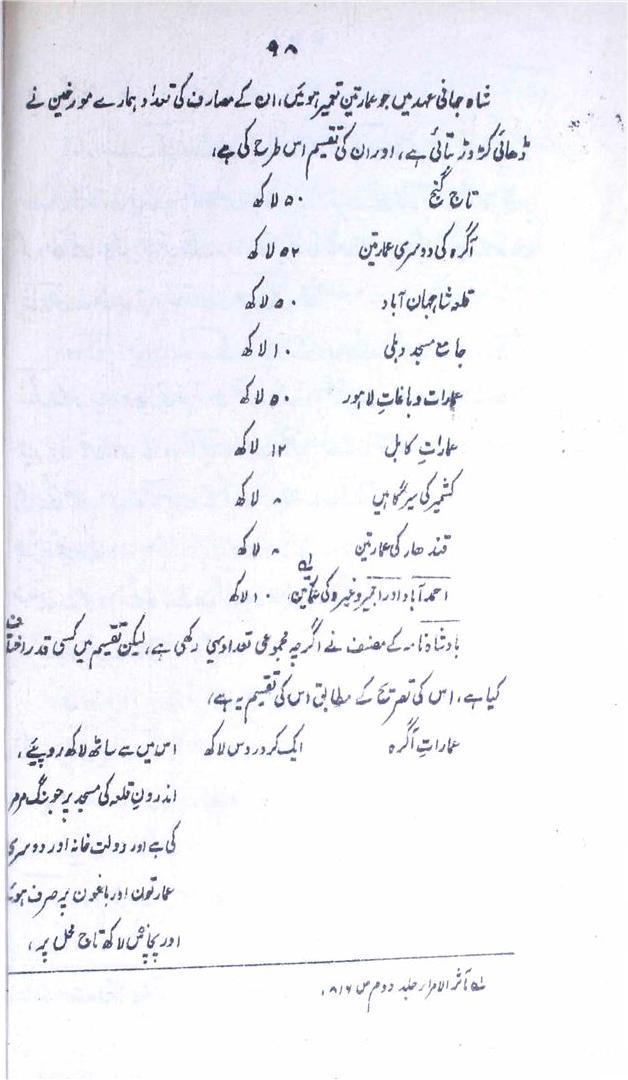 ۹۸
شاہ جہانی عہد میں جو عمارتین تعمیر ہوئیں، ان کے مصارف کی تعداد ہمارے مورخین نے
ڈھائی کڑوڑ بتائی ہے، اور ان کی تقسیم اس طرح کی ہے،
تاج گنج ۵۰ لاکھ
آگرہ کی دوسری عمارتین ۵۲ لاکھ
قلعہ شاہجہان آباد ۵۰ لاکھ
جامع مسجد دہلی ۱۰ لاکھ
عمارات و باغات لاہور ۵۰ لاکھ
عمارات کابل ۱۲ لاکھ
کشمیر کی سیرگاہیں ۸ لاکھ
قندھار کی عمارتین ۸ لاکھ
احمد آباد اور اجمیر وغیرہ کی عمارتین ۱۰ لاکھ
بادشاہ نامہ کے مصنف نے اگرچہ مجموعی تعداد یہی رکھی ہے، لیکن تقسیم میں کسی قدر اختلاف
کیا ہے، اس کی تصریح کے مطابق اس کی تقسیم یہ ہے،
عمارات آگرہ ایک کرور دس لاکھ اس میں سے ساٹھ لاکھ روپیئے،
اندرون قلعہ کی مسجد پر جو سنگ مرمر
کی ہے اور دولت خانہ اور دوسری
عمارتون اور باغون پر صرف ہوئے
اور پچاس لاکھ تاج محل پر،
لہ مآثر الامرار جلد دوم ص ۸۱۶،